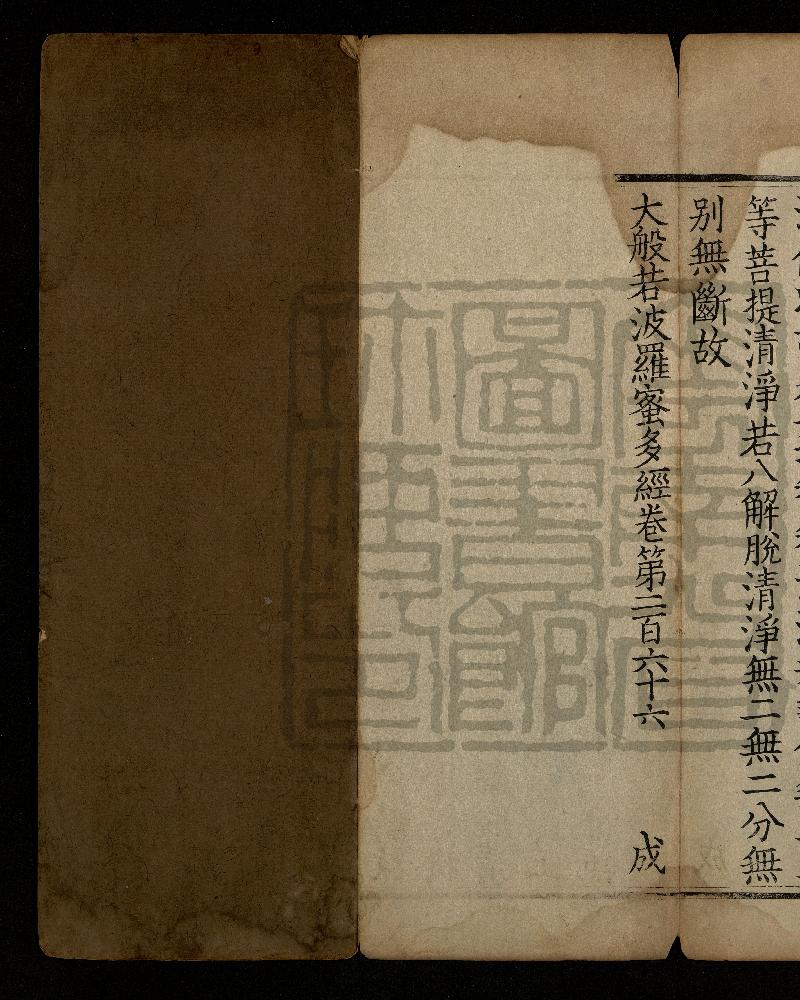 等菩提清淨若八解脫清淨無二無二分無
别無斷故
大般若波羅蜜多經卷第二百六十六 成
圖書館